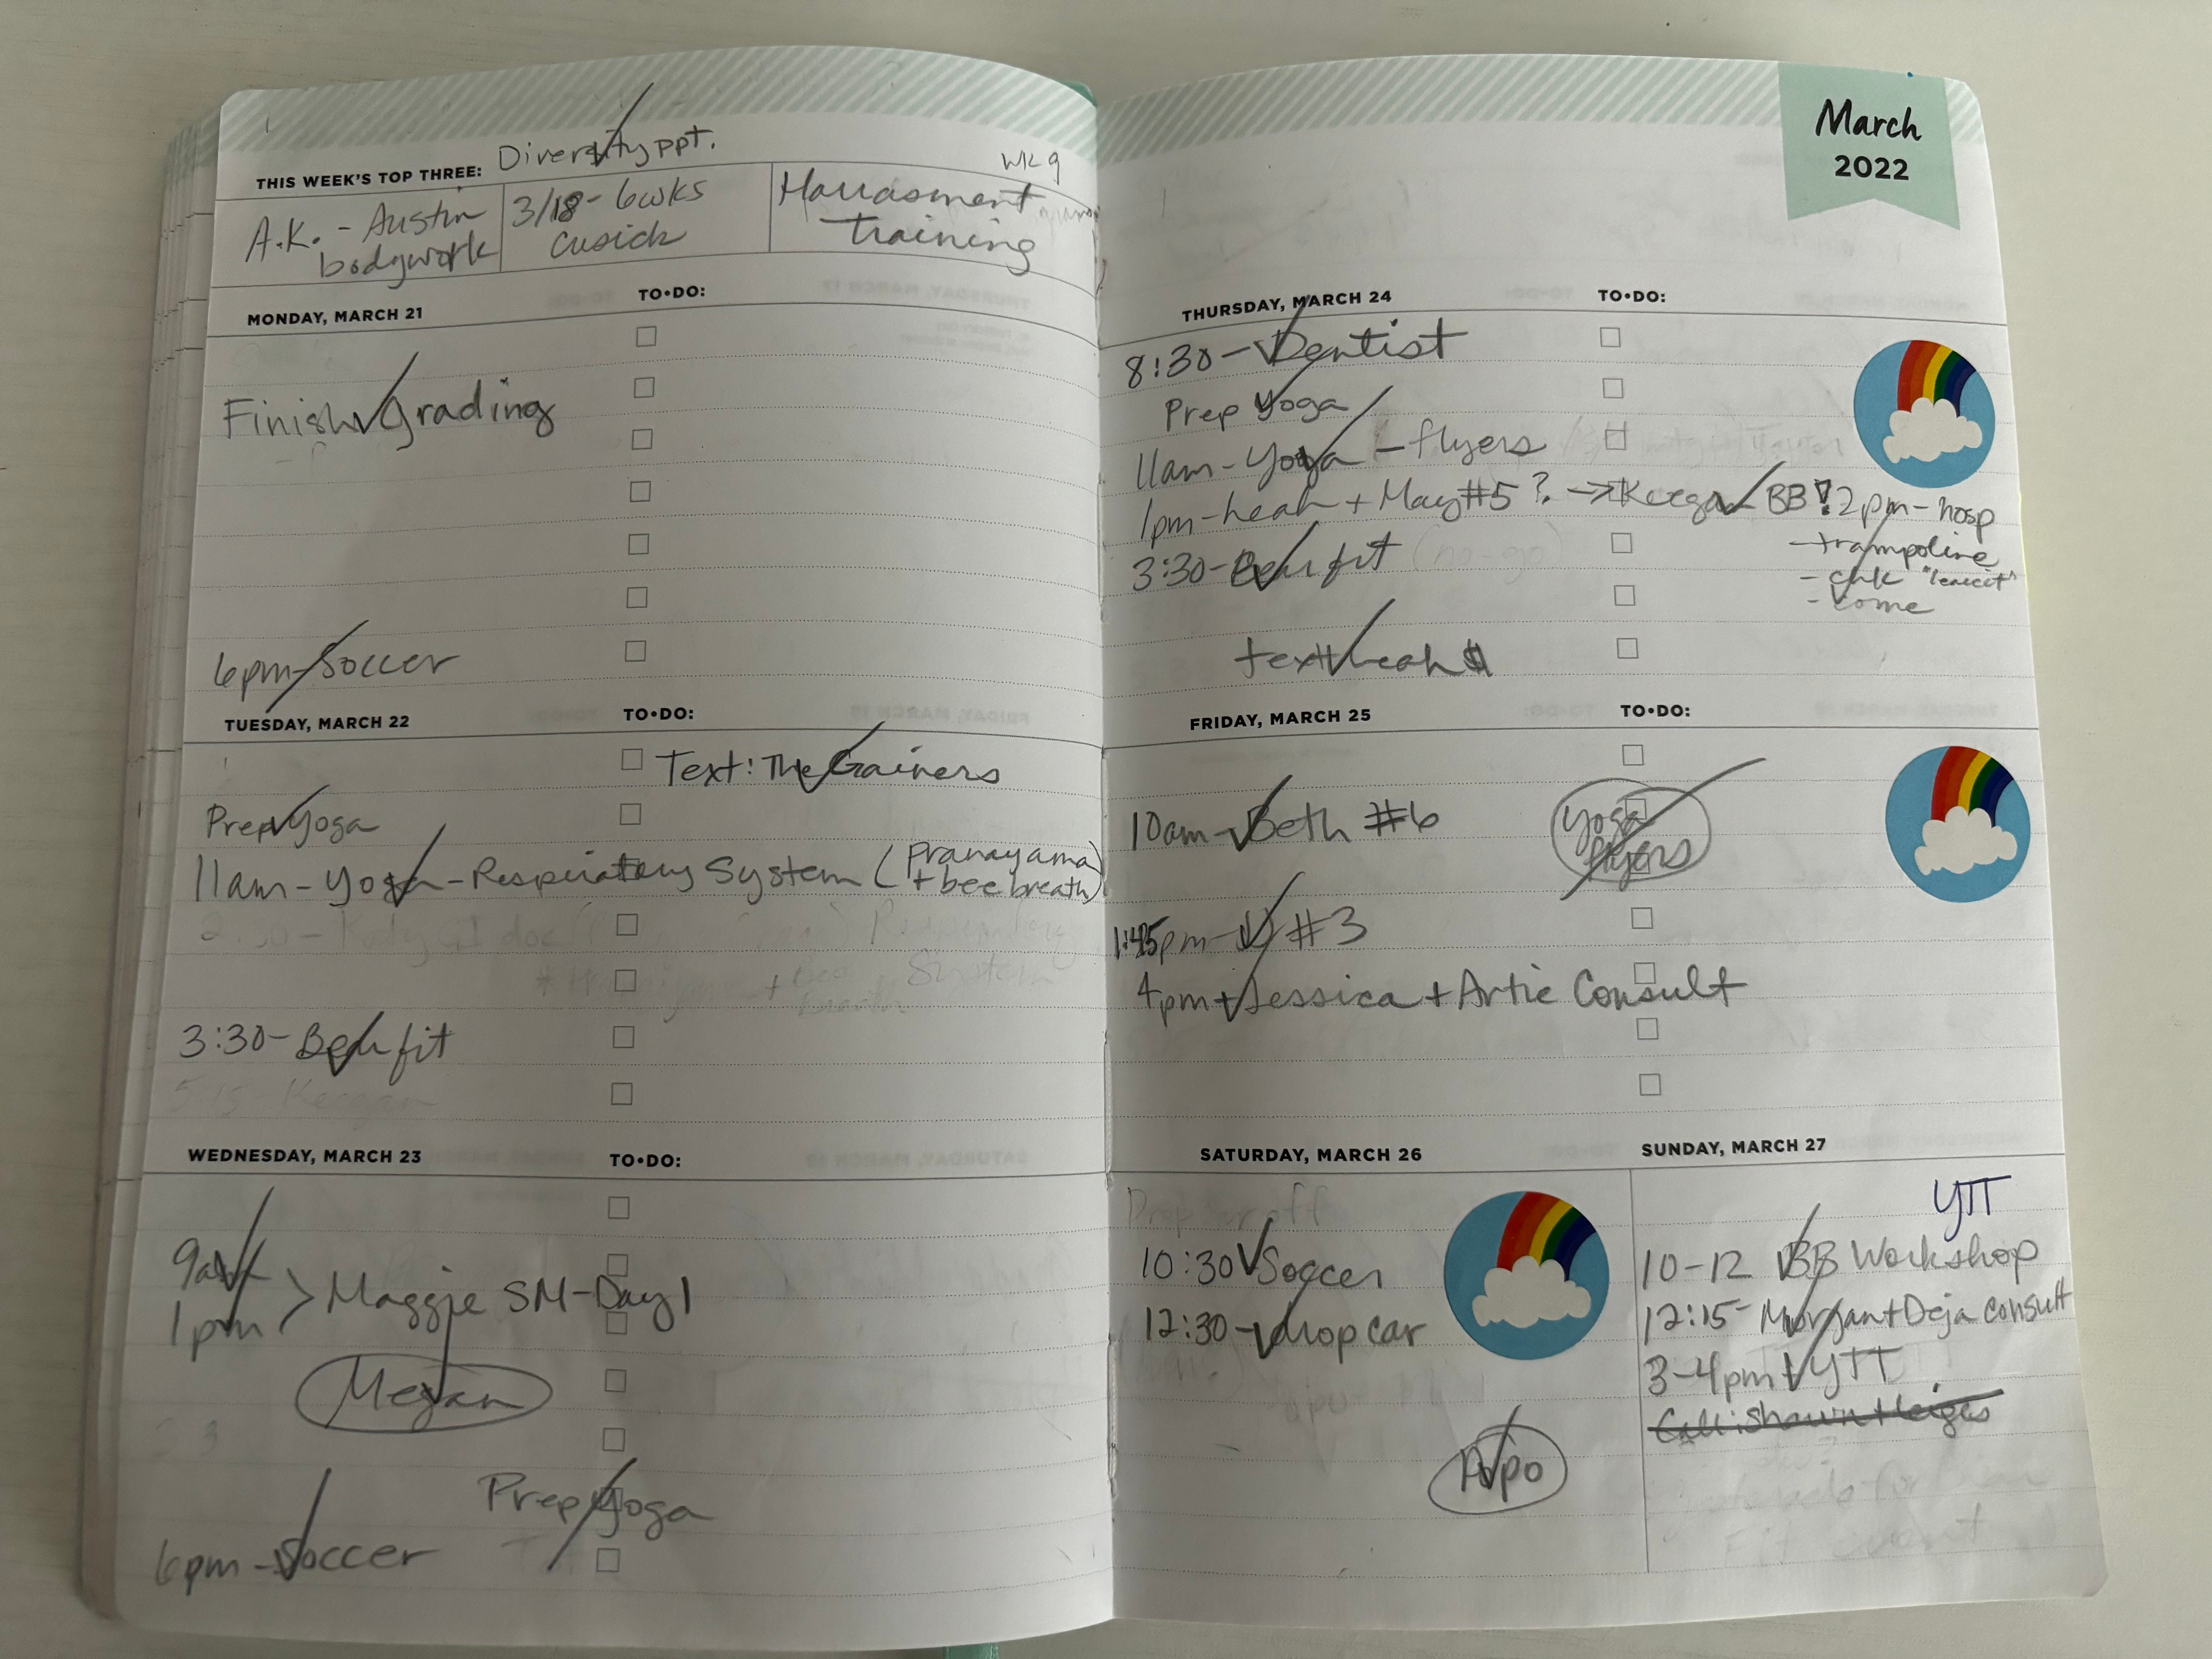 March
2022
Diversity ppt.
WK 9
THIS WEEK'S TOP THREE:
A.K. - Austin bodywork
3/18 - 6wks cusick
Harrasment training
MONDAY, MARCH 21 TO•DO:
Finish Grading
6pm - Soccer
TUESDAY, MARCH 22 TO•DO:
Text: The Gainers
Prep Yoga
11am - Yoga - Respiratory System (Pranayama + bee breath)
3:30 - Beth fit
5:15 - Keegan
WEDNESDAY, MARCH 23 TO•DO:
9am
1pm > Maggie SM - Day 1
Megan
Prep Yoga
6pm - Soccer
THURSDAY, MARCH 24 TO•DO:
8:30 - Dentist
Prep Yoga
11am - Yoga - flyers
1pm - Leah + May #5? → Keegan BB! 2pm - hosp
- trampoline
- come
3:30 - fit (no-go)
text Leah $
FRIDAY, MARCH 25 TO•DO:
10am - Beth #6
Yoga flyers
1:45pm - #3
4pm - Jessica + Artie Consult
SATURDAY, MARCH 26
10:30 Soccer
12:30 - drop car
SUNDAY, MARCH 27
YTT
10-12 BB Workshop
12:15 - Morgan + Deja consult
3-4pm YTT
Call: Shawn +
Fit event